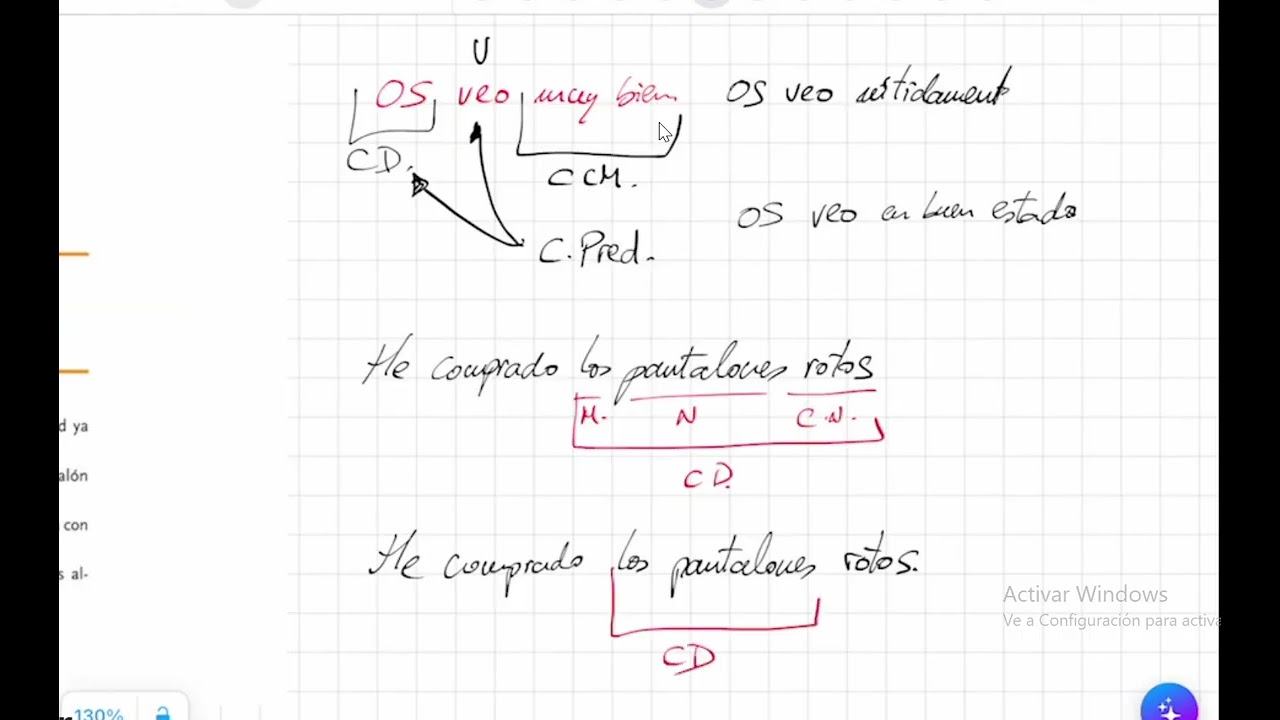 U
OS veo muy bien OS veo nítidament
CD. CCM.
OS veo en buen estado
C. Pred.
He comprado los pantalones rotos
M. N C.N.
d ya
CD.
alón
con
He comprado los pantalones rotos.
s al-
Activar Windows
Ve a Configuración para activa
CD
130%